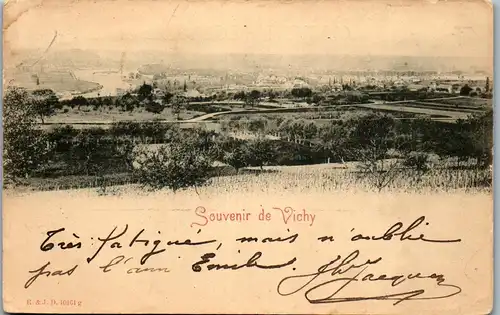 Souvenir de Vichy
Très fatigué, mais n'oublie
pas l'ami Emile
E. & J. D. 10361 g